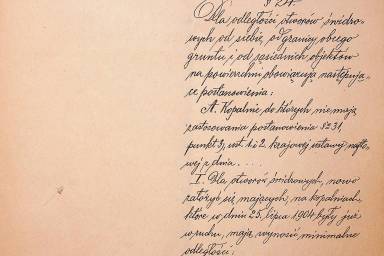 § 24.
Dla odległości otworów świdro-
wych od siebie, od granicy obcego
gruntu i od sąsiednich objektów
na powierzchni obowiązują następują-
ce postanowienia:
A. Kopalnie do których nie mają
zastosowania postanowienia § 31,
punkt 3, ust. 1 i 2 krajowej ustawy nafto-
wej z dnia . . . .
I. Dla otworów świdrowych, nowo
założyć się mających, na kopalniach,
które w dniu 25. lipca 1904 były już
w ruchu, mają wynosić minimalne
odległości: